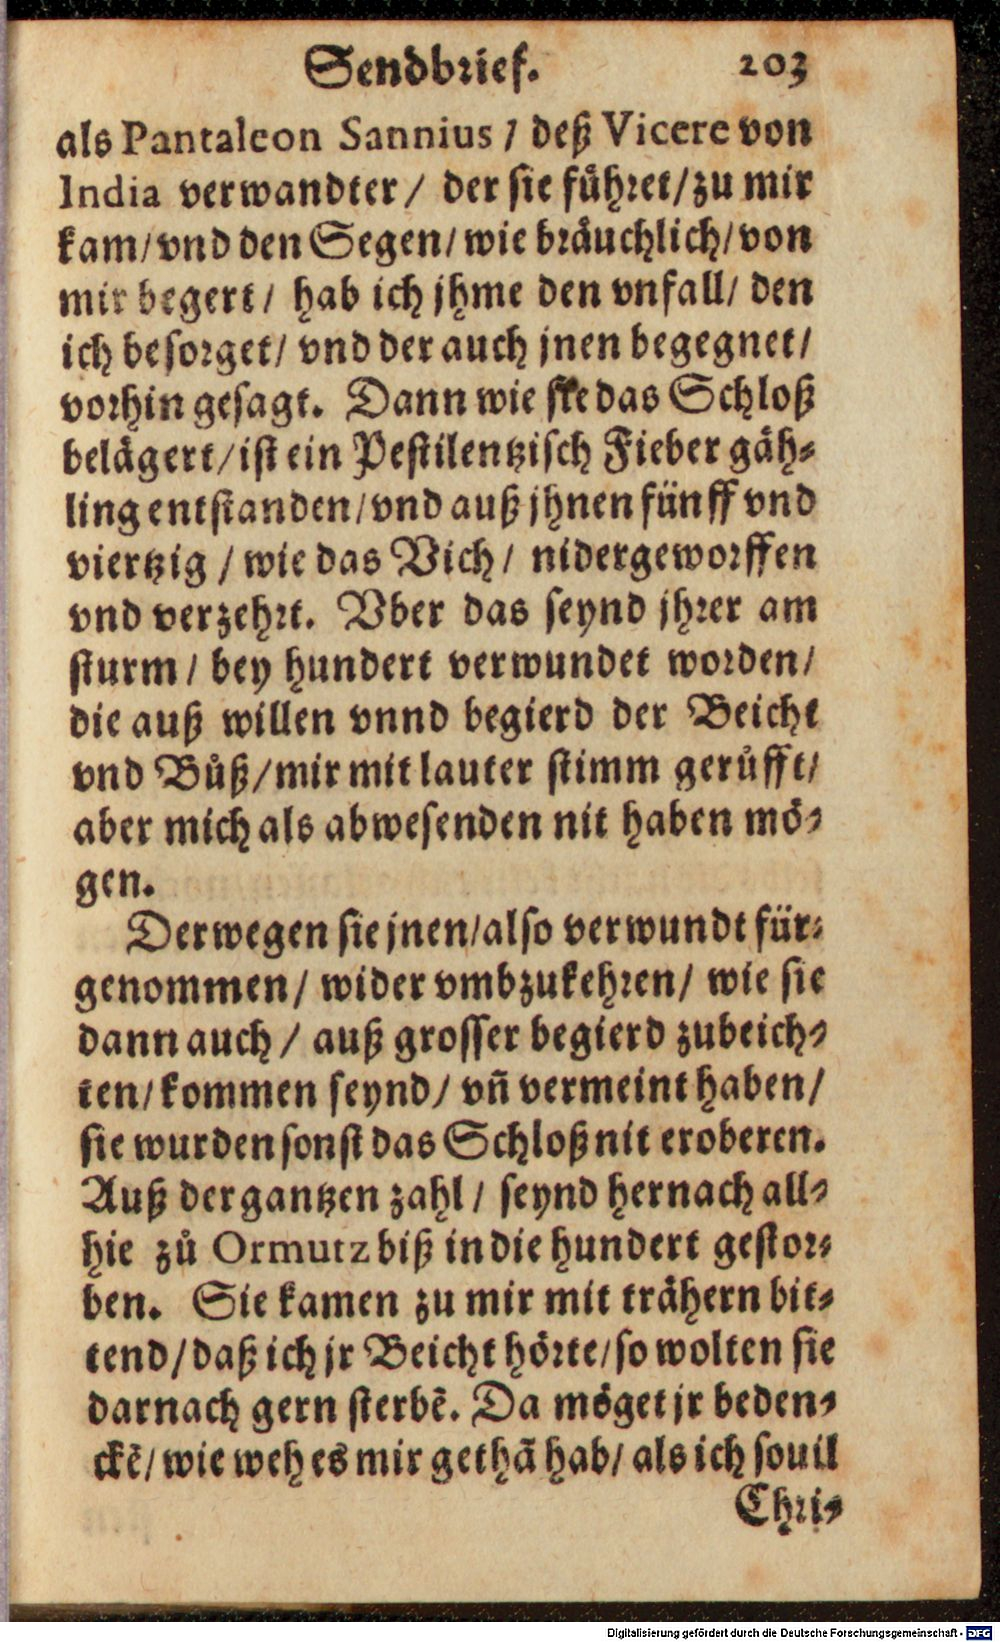 Sendbrief. 203
als Pantaleon Sannius / deß Vicere von
India verwandter / der sie führet / zu mir
kam / vnd den Segen / wie bräuchlich / von
mir begert / hab ich jhme den vnfall / den
ich besorget / vnd der auch jnen begegnet /
vorhin gesagt. Dann wie sie das Schloß
belägert / ist ein Pestilentzisch Fieber gäh-
ling entstanden / vnd auß jhnen fünff vnd
viertzig / wie das Vich / nidergeworffen
vnd verzehrt. Vber das seynd jhrer am
sturm / bey hundert verwundet worden /
die auß willen vnnd begierd der Beicht
vnd Bůß / mir mit lauter stimm gerůfft /
aber mich als abwesenden nit haben mö-
gen.
Derwegen sie jnen / also verwundt für-
genommen / wider vmbzukehren / wie sie
dann auch / auß grosser begierd zubeich-
ten / kommen seynd / vñ vermeint haben /
sie wurden sonst das Schloß nit eroberen.
Auß der gantzen zahl / seynd hernach all-
hie zů Ormutz biß in die hundert gestor-
ben. Sie kamen zu mir mit trähern bit-
tend / daß ich jr Beicht hörte / so wolten sie
darnach gern sterbē. Da möget jr beden-
ckē / wie weh es mir gethā hab / als ich souil
Chri-
Digitalisierung gefördert durch die Deutsche Forschungsgemeinschaft - DFG